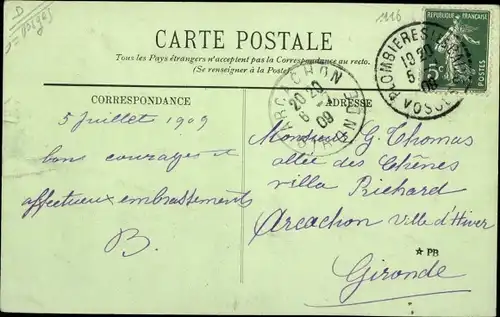 1116
CARTE POSTALE
Tous les Pays étrangers n'acceptent pas la Correspondance au recto.
(Se renseigner à la Poste)
RÉPUBLIQUE FRANÇAISE
5c
POSTES
PLOMBIERES-LES-BAINS
19 20
5
09
VOSGES
ARCACHON
20 20
6
09
GIRONDE
CORRESPONDANCE
ADRESSE
5 Juillet 1909
bons courages et
affectueux embrassements
B.
Monsieur G. Thomas
allée des Chênes
villa Richard
Arcachon ville d'Hiver
Gironde
★ PB